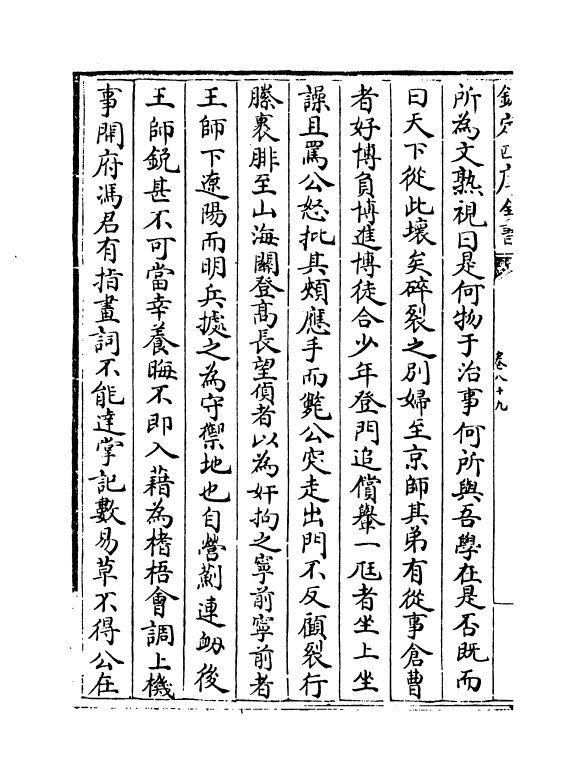 欽定四庫全書
卷八十九
所為文熟視曰是何物于治事何所與吾學在是否既而
曰天下從此壞矣碎裂之別婦至京師其弟有從事倉曹
者好博負博進博徒合少年登門追償轝一尪者坐上坐
譟且罵公怒批其頰應手而斃公突走出門不反顧裂行
縢裹腓至山海關登髙長望偵者以為奸拘之寧前寧前者
王師下遼陽而明兵據之為守禦地也自營薊連衂後
王師鋭甚不可當幸養晦不即入藉為楮梧會調上機
事開府馮君有指畫詞不能達掌記數易草不得公在